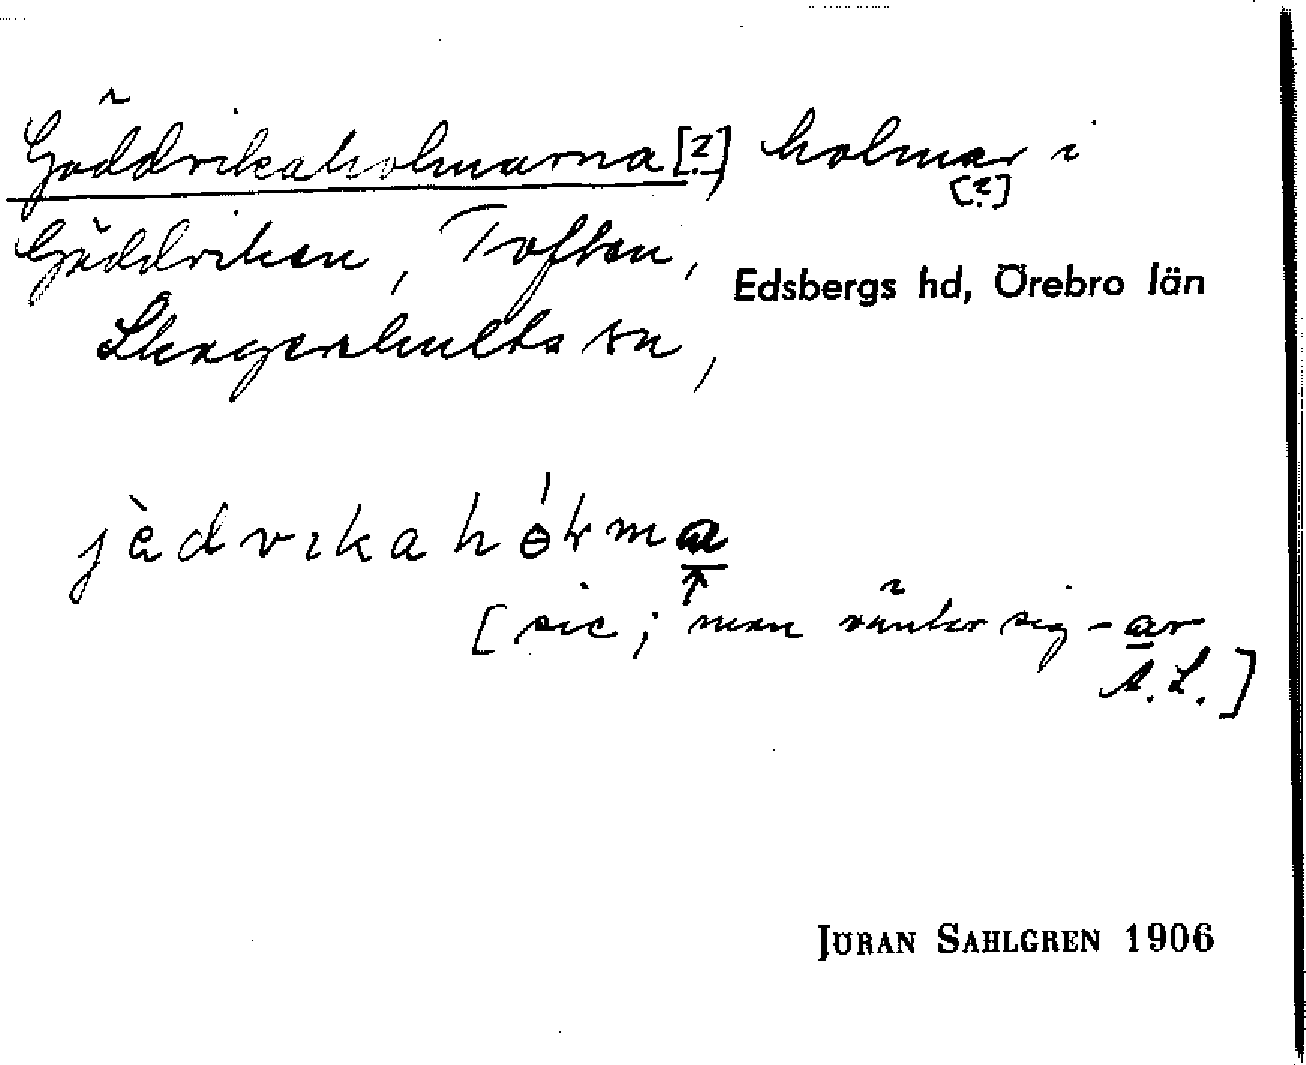 Gäddvikaholmarna [?], holmar [?] i
Gäddviken, Toften,
Skagershults sn, Edsbergs hd, Örebro län
jèdvikahólma
[sic; man väntar sig -ar
A.L.]
JÖRAN SAHLGREN 1906